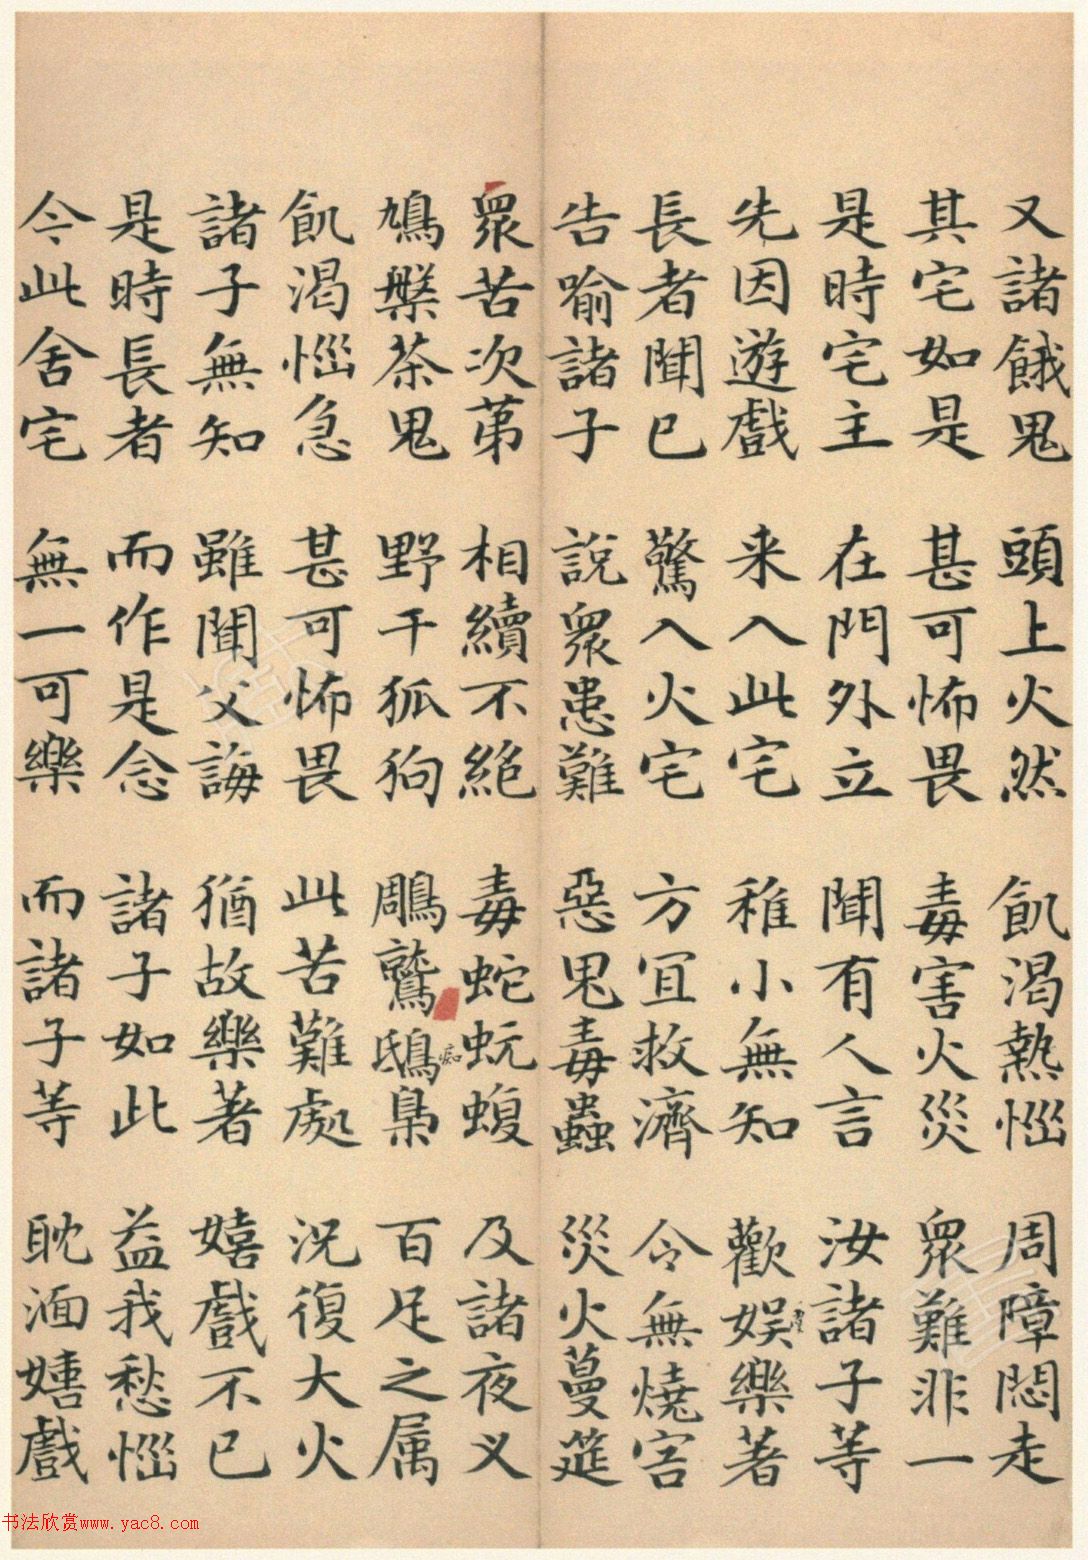 又諸餓鬼 頭上火然 飢渴熱惱 周障悶走
其宅如是 甚可怖畏 毒害火災 衆難非一
是時宅主 在門外立 聞有人言 汝諸子等
先因遊戲 来入此宅 稚小無知 歡娛樂著
長者聞已 驚入火宅 方宜救濟 令無燒害
告喻諸子 說衆患難 惡鬼毒蟲 災火蔓莚
衆苦次第 相續不絕 毒蛇蚖蝮 及諸夜叉
鳩槃荼鬼 野干狐狗 鵰鷲鴟梟 百足之属
飢渴惱急 甚可怖畏 此苦難處 況復大火
諸子無知 雖聞父誨 猶故樂著 嬉戲不已
是時長者 而作是念 諸子如此 益我愁惱
今此舍宅 無一可樂 而諸子等 耽湎嬉戲
书法欣赏www.yac8.com